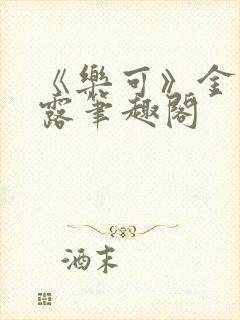 《樂可》金
露筆趣閣
酒末